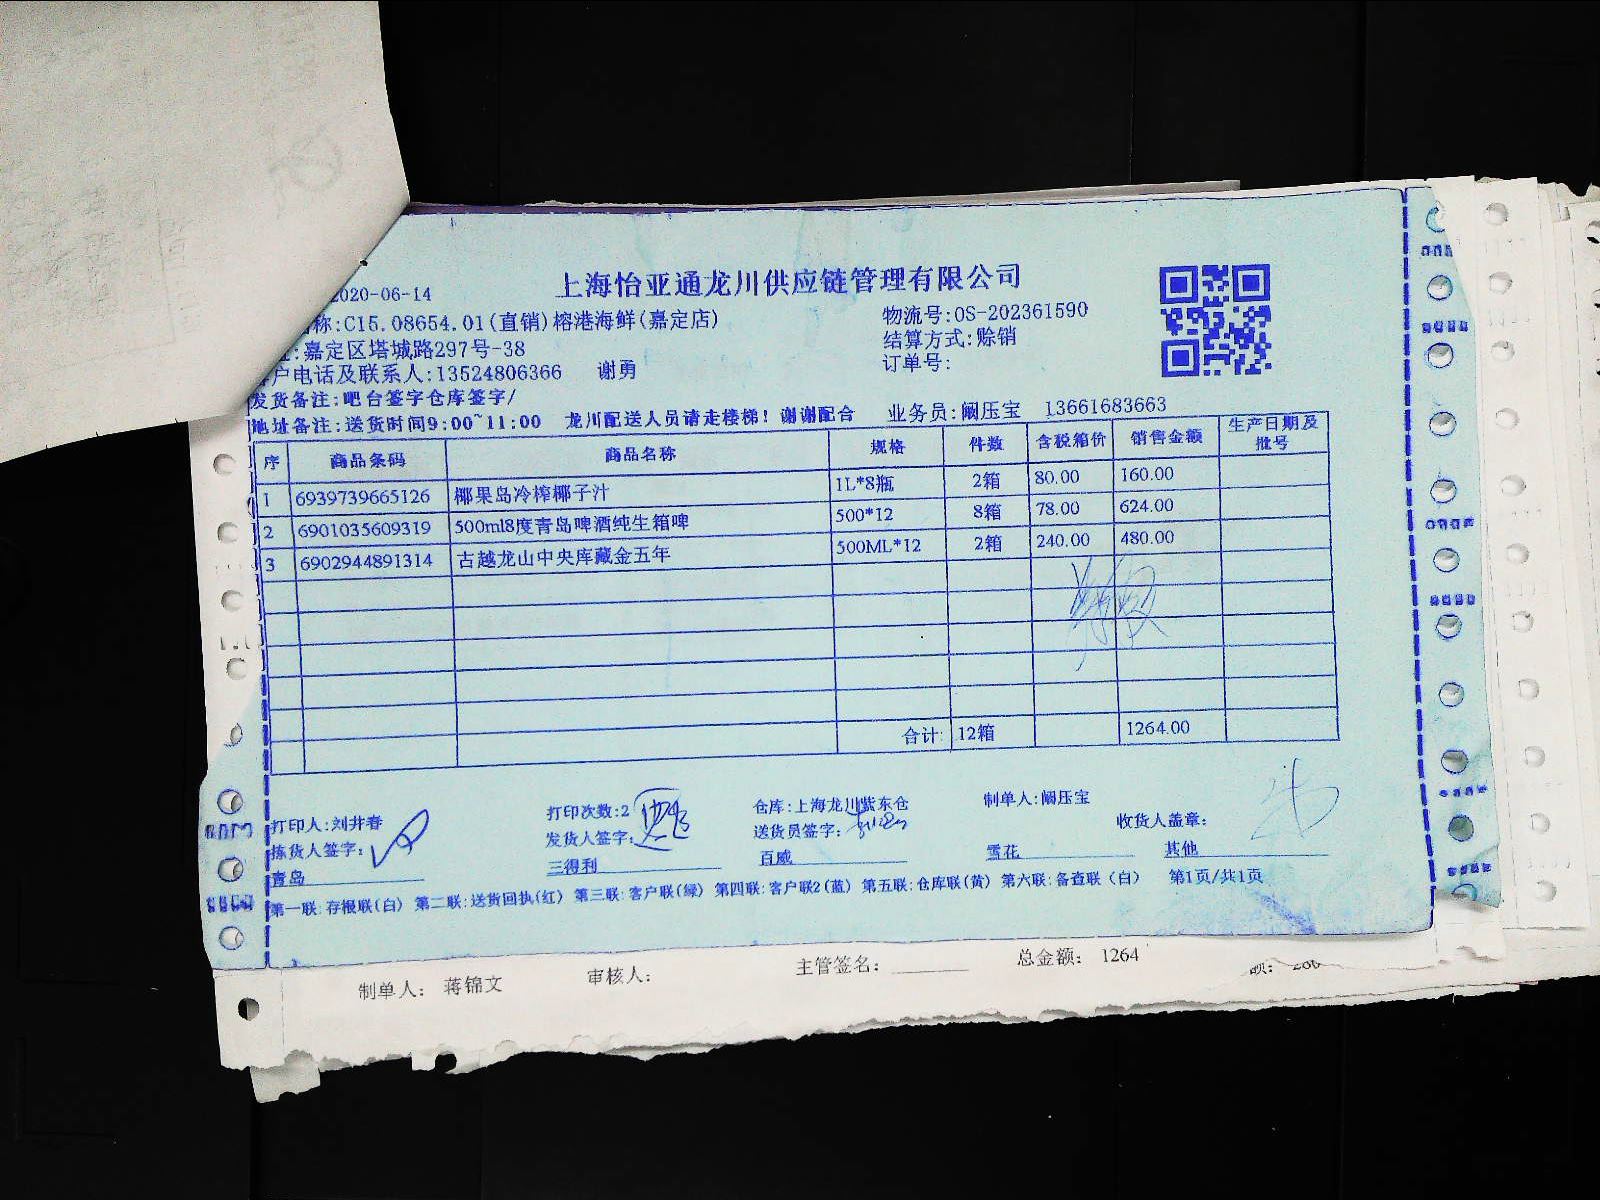 上海怡亚通龙川供应链管理有限公司
2020-06-14
称:C15.08654.01(直销)榕港海鲜(嘉定店) 物流号:OS-202361590
:嘉定区塔城路297号-38 结算方式:赊销
户电话及联系人:13524806366 谢勇 订单号:
发货备注:吧台签字仓库签字/
地址备注:送货时间9:00~11:00 龙川配送人员请走楼梯！谢谢配合 业务员:阚压宝 13661683663
序 商品条码 商品名称 规格 件数 含税箱价 销售金额 生产日期及批号
1 6939739665126 椰果岛冷榨椰子汁 1L*8瓶 2箱 80.00 160.00
2 6901035609319 500ml8度青岛啤酒纯生箱啤 500*12 8箱 78.00 624.00
3 6902944891314 古越龙山中央库藏金五年 500ML*12 2箱 240.00 480.00
合计: 12箱 1264.00
打印人:刘井春 打印次数:2 仓库:上海龙川紫东仓 制单人:阚压宝
拣货人签字: 发货人签字: 送货员签字: 收货人盖章:
青岛 三得利 百威 雪花 其他
第一联:存根联(白) 第二联:送货回执(红) 第三联:客户联(绿) 第四联:客户联2(蓝) 第五联:仓库联(黄) 第六联:备查联(白) 第1页/共1页
制单人: 蒋锦文 审核人: 主管签名: 总金额: 1264